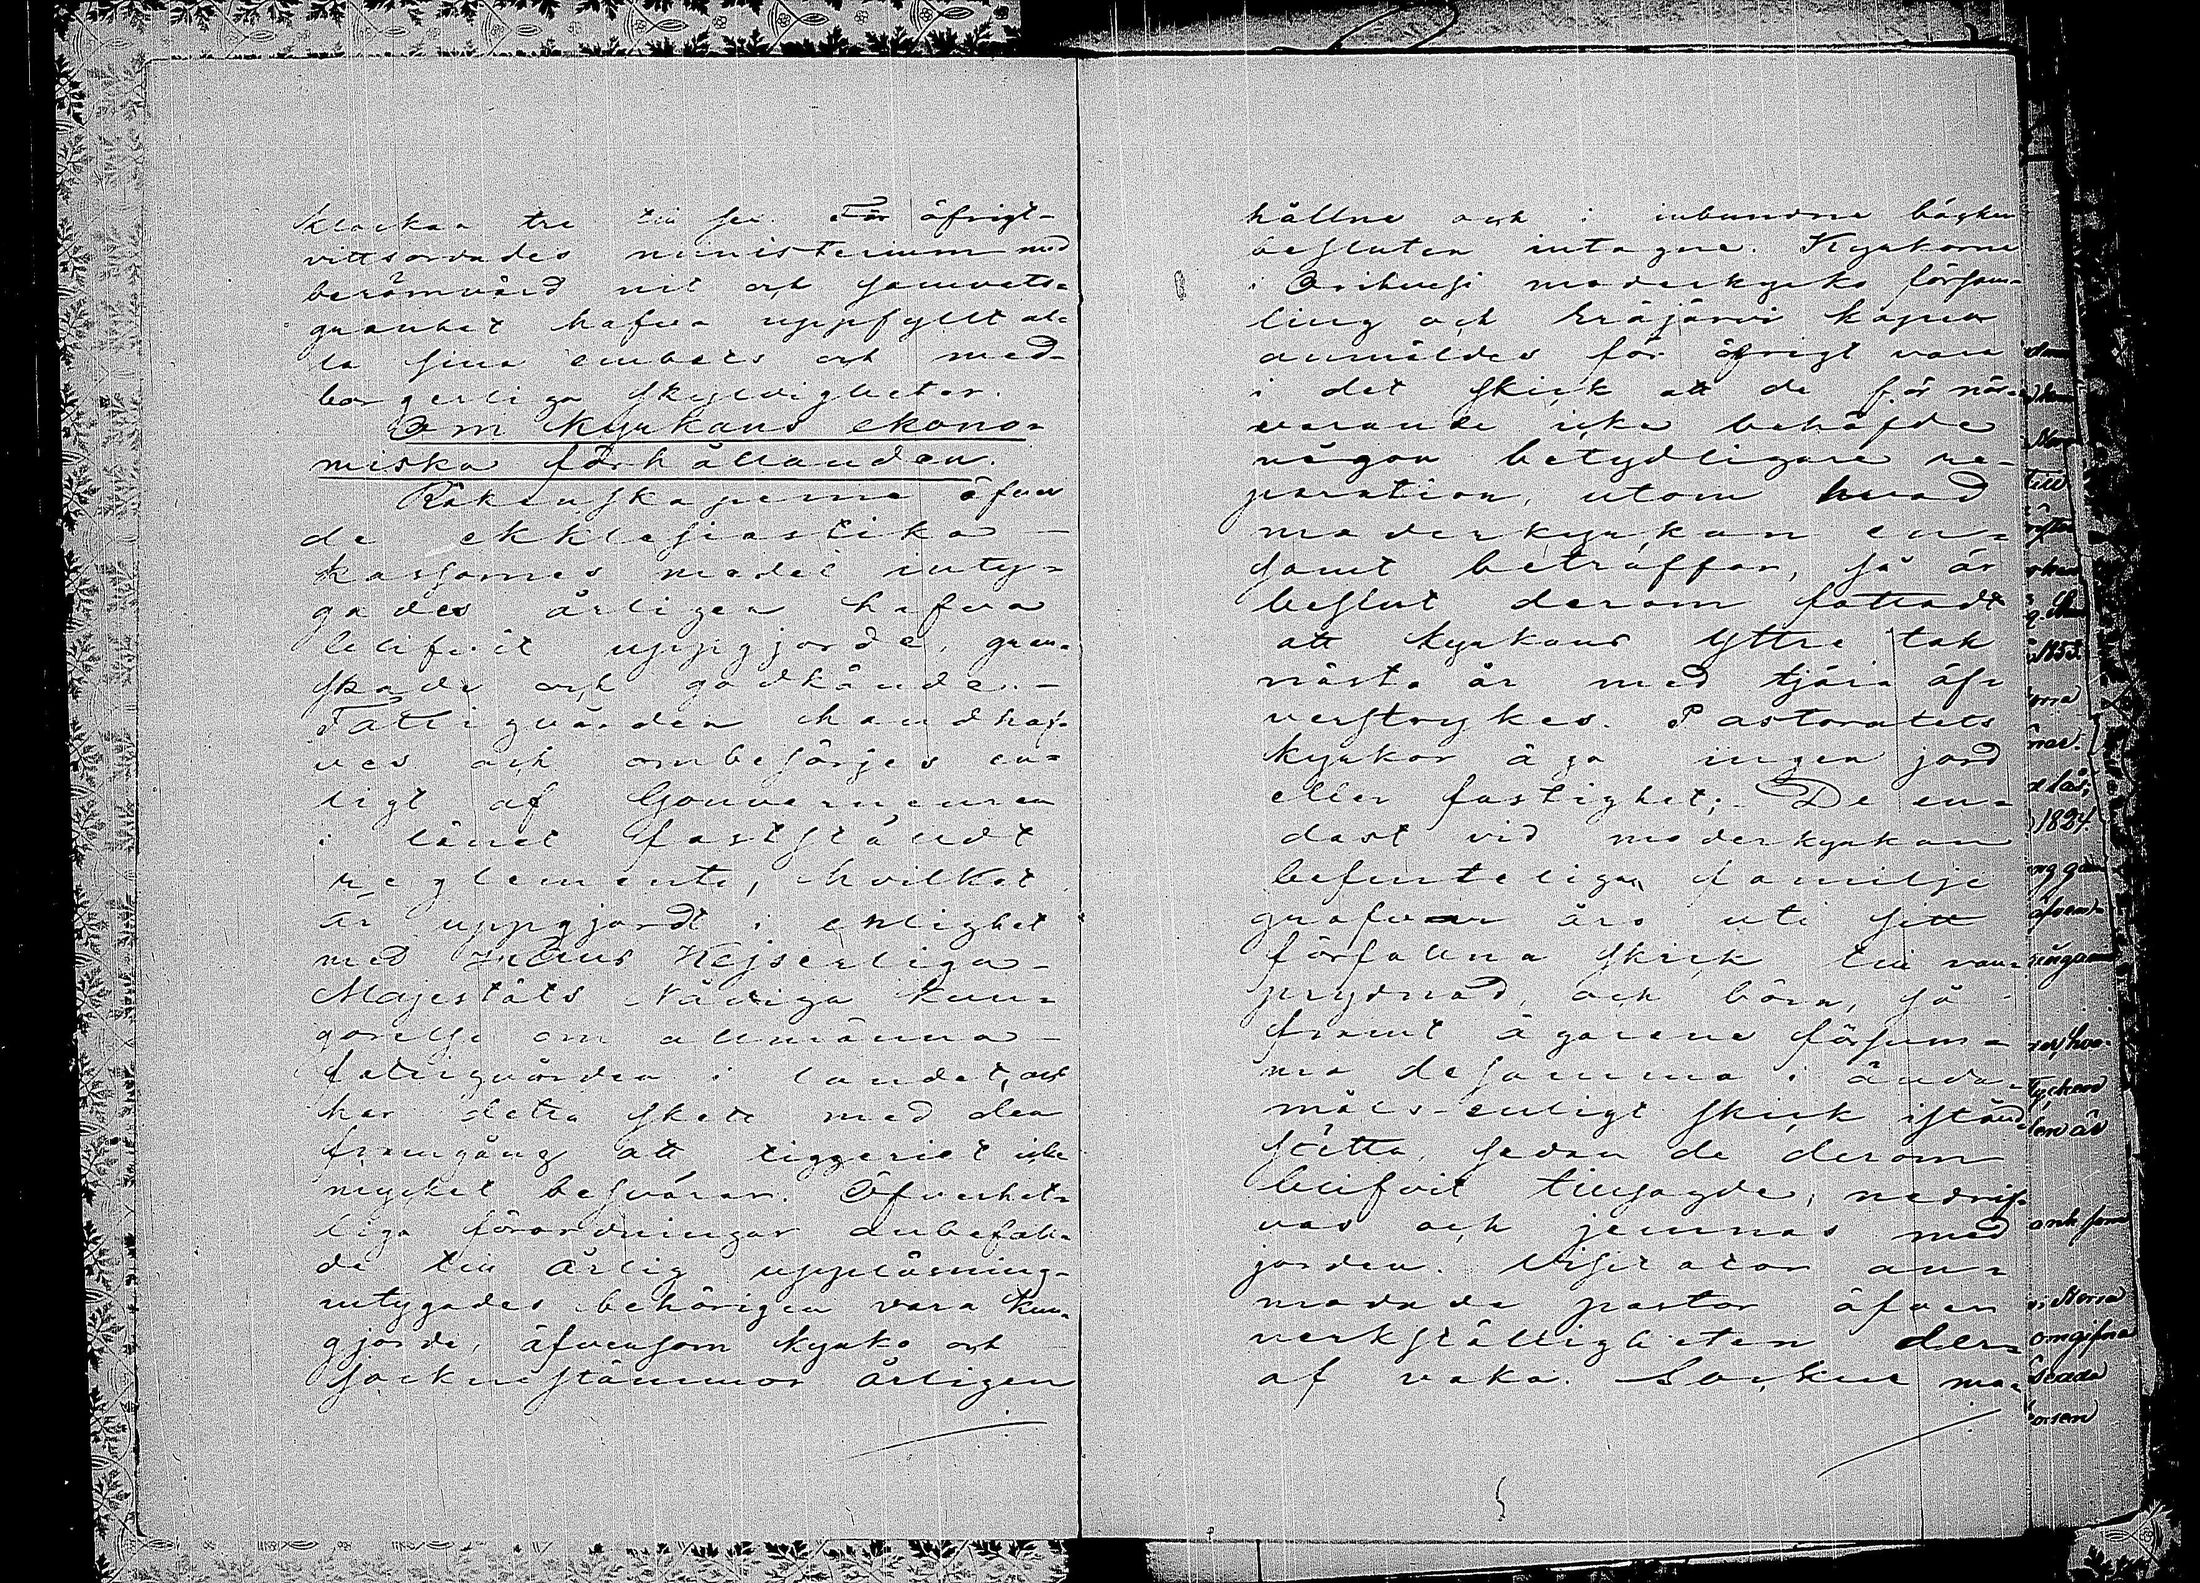 klockan tre till sex. För öfrigt-
vittsordades ministerium med
berömvärd nit och samvets-
granhet hafva uppfyllt al-
la sina embets och med-
borgerliga skyldigheter.
Om kyrkans ekono-
miska förhållanden.
Räkenskaperne öfver
de ekklesiastika -
kassornes medel inty-
gades årligen hafva
blifvit uppgjorde, gran-
skade och godkände. -
Fattigvården handhaf-
ves och ombesörjes en-
ligt af Gouverneuren
i länet fastställdt
reglemente, hvilket
är uppgjordt i enlighet
med Hans Kejserliga-
Majestäts Nådiga kun-
görelse om allmänna -
fattigvården i landet, och
har detta skett med den
framgång att tiggeriet icke
mycket besvärar. Öfverhet-
liga förordningar anbefall-
de till årlig uppläsning-
intygades behörigen vara kun-
gjorde, äfvensom kyrko och
sockenstämmor årligen
hållne och i inbundne böcker
besluten intagne. Kyrkorne
i Orihvesi moderkyrko försam-
ling och Eräjärvi kapell
anmäldes för öfrigt vara
i det skick att de för när-
varande icke behöfde
någon betydligare re-
paration, utom hvad
moderkyrkan en-
samt beträffar, så är
beslut derom fattadt
att kyrkans yttre tak
nästa år med tjära öf-
verstrykes. Pastoratets
kyrkor äga ingen jord
eller fastighet; De en-
dast vid moderkyrkan
befinteliga familje
grafvar äro uti sitt
förfallna skick till van-
prydnad, och böra, så -
framt ägarene försum-
ma desamma i ända-
måls-enligt skick istånd-
sätta, sedan de derom
blifvit tillsagde, nedrif-
vas och jemnas med
jorden. Visitator an-
modade pastor öfver
verkställigheten der-
af vaka. Socknema-
till
1853.
1884.